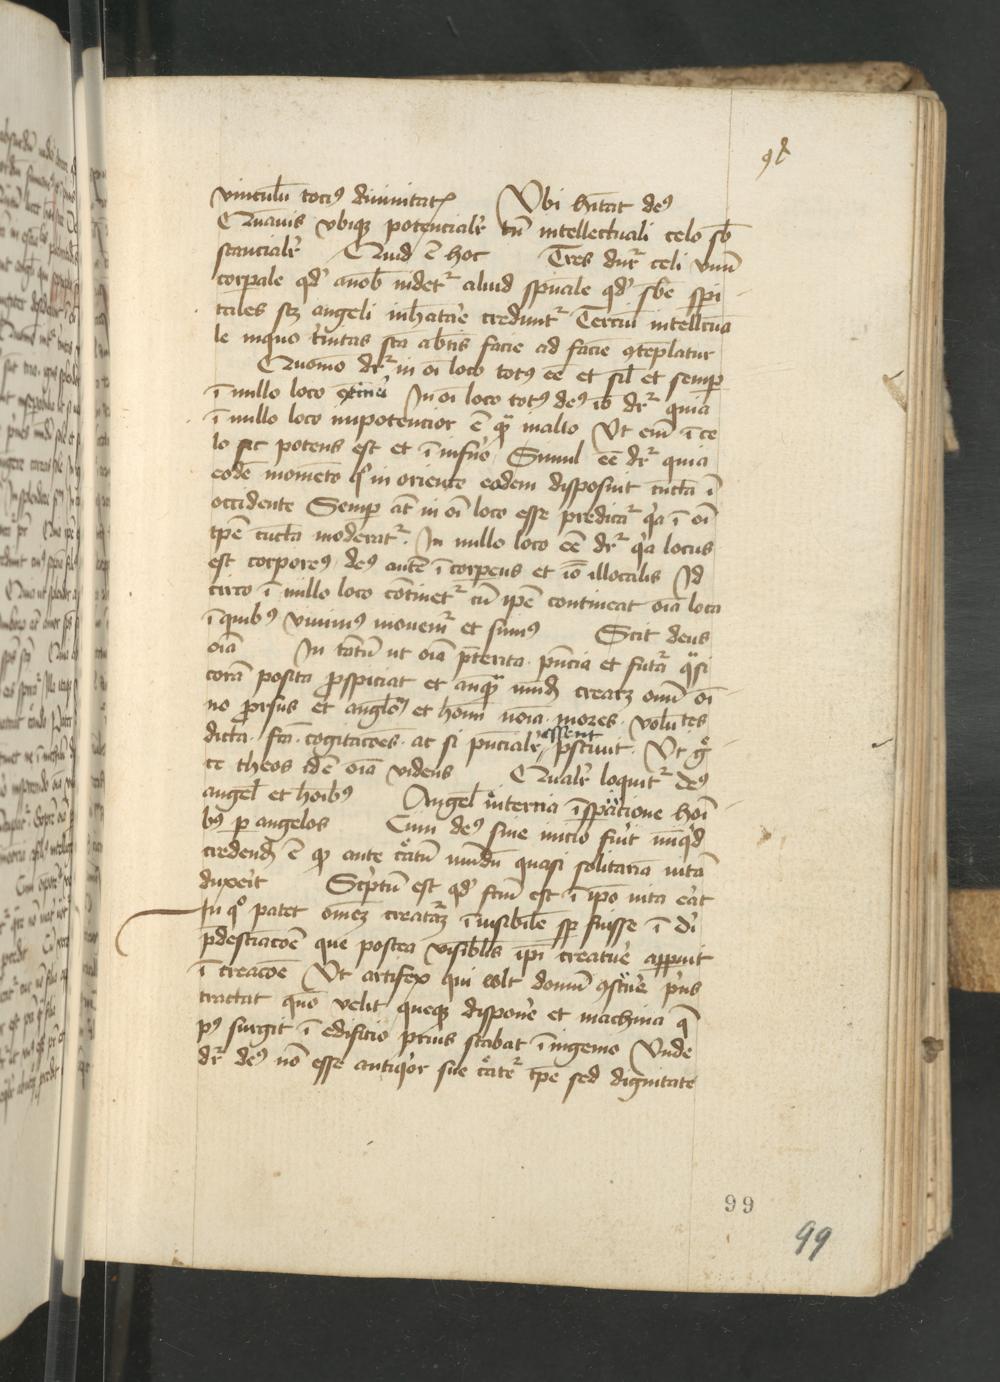 vinculu̅ toci⁹ diuinitatꝭ Vbi h̅itat de⁹
Quauis vbiqꝫ potencialr̛ tn̅ intellectuali celo sb̅
stancialr̛ Quid e̅ hoc Tres dnr̛ celi vnu̅
corpale qd̛ a nob̅ uidetᷣ aliud spuale qd̛ sb̅e spi
tales scꝫ angeli inh̅itare creduntᷣ Terciu̅ intellc̅ua
le in quo t̛nitas sc̅a a b̅tis facie ad facie̅ ꝯte̅platur
Quomo dr̛ in oi̅ loco tot⁹ ee̅ et sil̅ et semp̲
i̅ nullo loco In oi̅ loco tot⁹ de⁹ io̅ dr̛ quia
i̅ nullo loco impotencior e̅ qᷓ in alio Vt em̅ i̅ ce
lo sic potens est et i̅ inf̛no Simul ee̅ dr̛ quia
eode̅ mome̅to qͦ in oriente eodem disposuit cu̅cta i̅
occidente Semp̲ at̅ in oi̅ loco esse predicatᷣ qͥa i̅ oi̅
tp̅e cu̅cta moderatᷣ. In nullo loco ee̅ dr̛ qͥa locus
est corpore⁹ de⁹ aute̅ i̅corpeus et io̅ illocalis Id
circo i̅ nullo loco co̅tinetᷣ cu̅ ip̅e contineat oi̅a loca
i̅ quib⁹ viuim⁹ mouem̛ et sum⁹ Scit deus
oi̅a In ta̅tu̅ ut oi̅a p̅terita. pn̅cia et futᷓa qᷓsi
cora̅ posita p̲spiciat et anqᷓ mu̅dꝫ crearꝫ omniu̅ oi̅
no prͦsus et anglo̅ꝝ et homi̅ no̅i̅a. mores. volu̅tes
dicta. fc̅a. cogitacoe̅s. ac si pn̅cialr̛ essent p̅sciuit. Vt gͦ
ce theos id e̅ oi̅a videns Qualr̛ loquitᷣ de⁹
angel̅ et ho̅ib⁹ Angel̅ interna i̅spiracione hoi̅
b⁹ p̲ angelos Cum de⁹ sine inicio fưit nu̅qͥd
credendꝫ e̅ qꝫ ante cͣatu̅ mu̅du̅ quasi solitaria̅ uita̅
duxe̛it Sc̛ptu̅ est qd̛ fc̅m est i̅ ip̅o uita e̛at
In qͦ patet om̅eꝫ creatᷓaꝫ i̅uisibile̅ sp̲ fuisse i̅ di̅
p̅destiacoe̅ que postea visibil̅s ip̅i creatưe app̲uit
i̅ creacoe̅ Vt artifex qui vlt̅ domu̅ ꝯst̛ue̛ p̛us
tractat quo̅ velit queqꝫ dispone̛ et machina q̅
p⁹ surgit i̅ edificio prius stabat i̅ ingenio Vnde
dr̛ de⁹ no̅ esse antiqͥor sue cͣatᷣe tp̅e sed dignitate
99
99